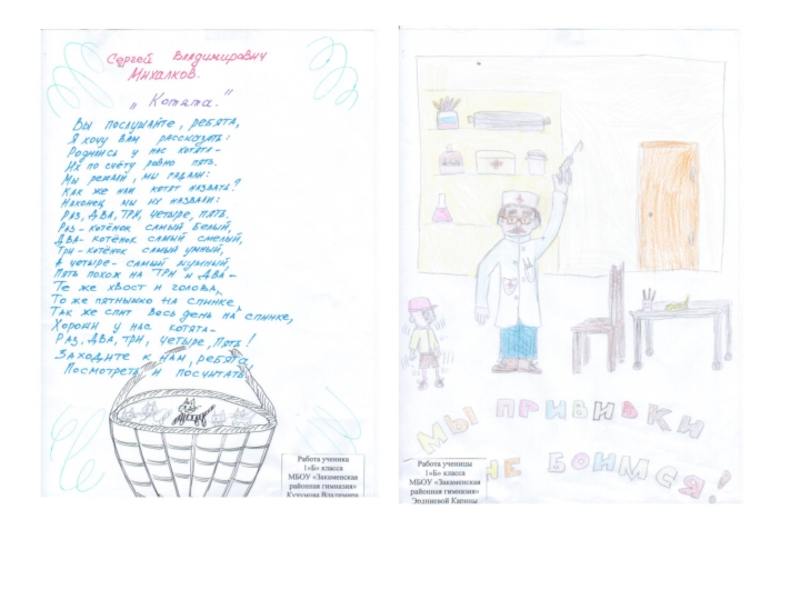 Сергей Владимирович
Михалков.
"Котята."
Вы послушайте, ребята,
Я хочу вам рассказать:
Родились у нас котята-
Их по счёту ровно пять.
Мы решали, мы гадали:
Как же нам котят назвать?
Наконец мы их назвали:
Раз, два, три, четыре, пять.
Раз - котёнок самый белый,
Два - котёнок самый смелый,
Три - котёнок самый умный,
А четыре - самый шумный,
Пять похож на три и два -
Те же хвост и голова,
То же пятнышко на спинке,
Так же спит весь день на спинке,
Хороши у нас котята-
Раз, два, три, четыре, пять!
Заходите к нам, ребята,
Посмотреть и посчитать.
Работа ученика
1«Б» класса
МБОУ «Закаменская
районная гимназия»
Владимира
МЫ ПРИВИВКИ
НЕ БОИМСЯ!
Работа ученицы
1«Б» класса
МБОУ «Закаменская
районная гимназия»